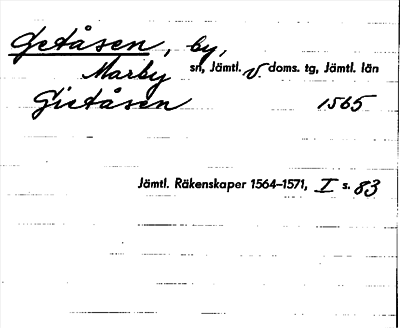 Getåsen, by,
Marby sn, Jämtl. v. doms. tg, Jämtl. län
Gietåsen 1565
Jämtl. Räkenskaper 1564–1571, I s. 83